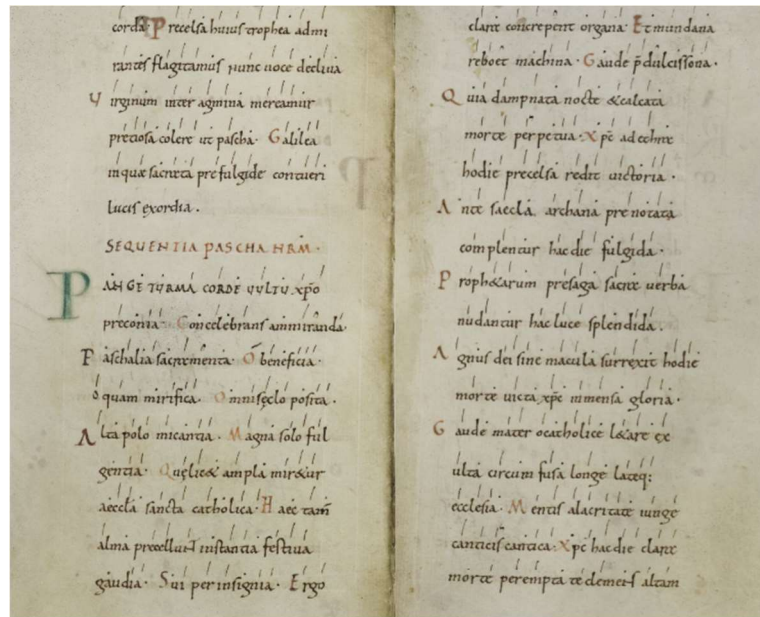 corda Precelsa huius trophea admi
rantes flagitamus nunc uoce decliuia
Virginum inter agmina mereamur
preciosa colere ut pascha. Galilea
in qua sacrata prefulgide contueri
lucis exordia.
SEQUENTIA PASCHA NRM.
PANGE TURMA CORDE VULTU xp̄o
preconia. Concelebrans ammiranda.
Paschalia sacramenta. O beneficia.
O quam mirifica. Omni sęclo posita.
Alta polo micantia. Magna solo ful
gentia. Quę lie& ampla mir&ur
aecclā sancta catholica. Haec tam̄
alma precellunt instantia festiua
gaudia. Sui per insignia. Ergo
clare concrepent organa. Et mundana
reboet machina. Gaude p̄dulcissona.
Quia dampnata nocte &calcata
morte perpetua. Xpc̄ ad echire
hodie precelsa redit uictoria.
Ante saecla. archana prenotata
complentur hac die fulgida.
Proph&arum presaga sacre uerba
nudantur hac luce splendida.
Agnus dei sine macula surrexit hodie
morte uicta xpc̄ inmensa gloria.
Gaude mater o catholice l&are ex
ulta circum fusa longe lateq;
ecclesia. Mentis alacritate iunge
canticis cantica. Xpc̄ hac die clare
morte perempta te demens altam